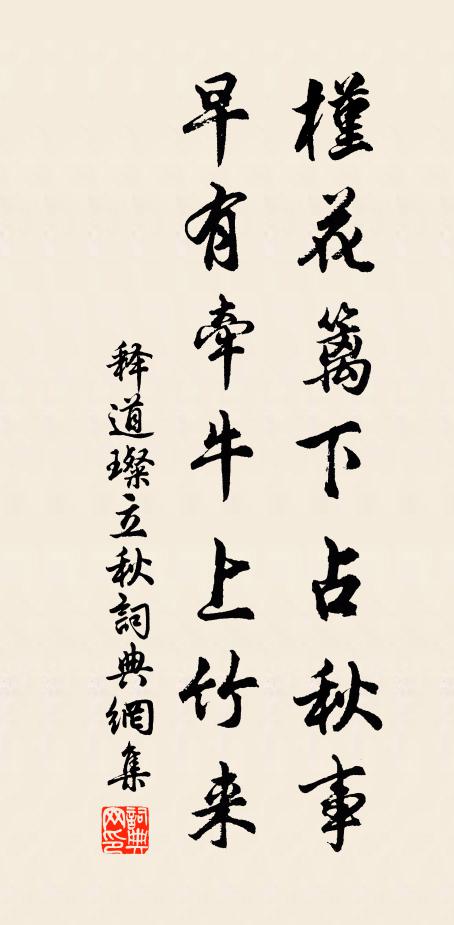 槿花篱下占秋事
早有牽牛上竹来
释道璨立秋詞典網集
詞典网印